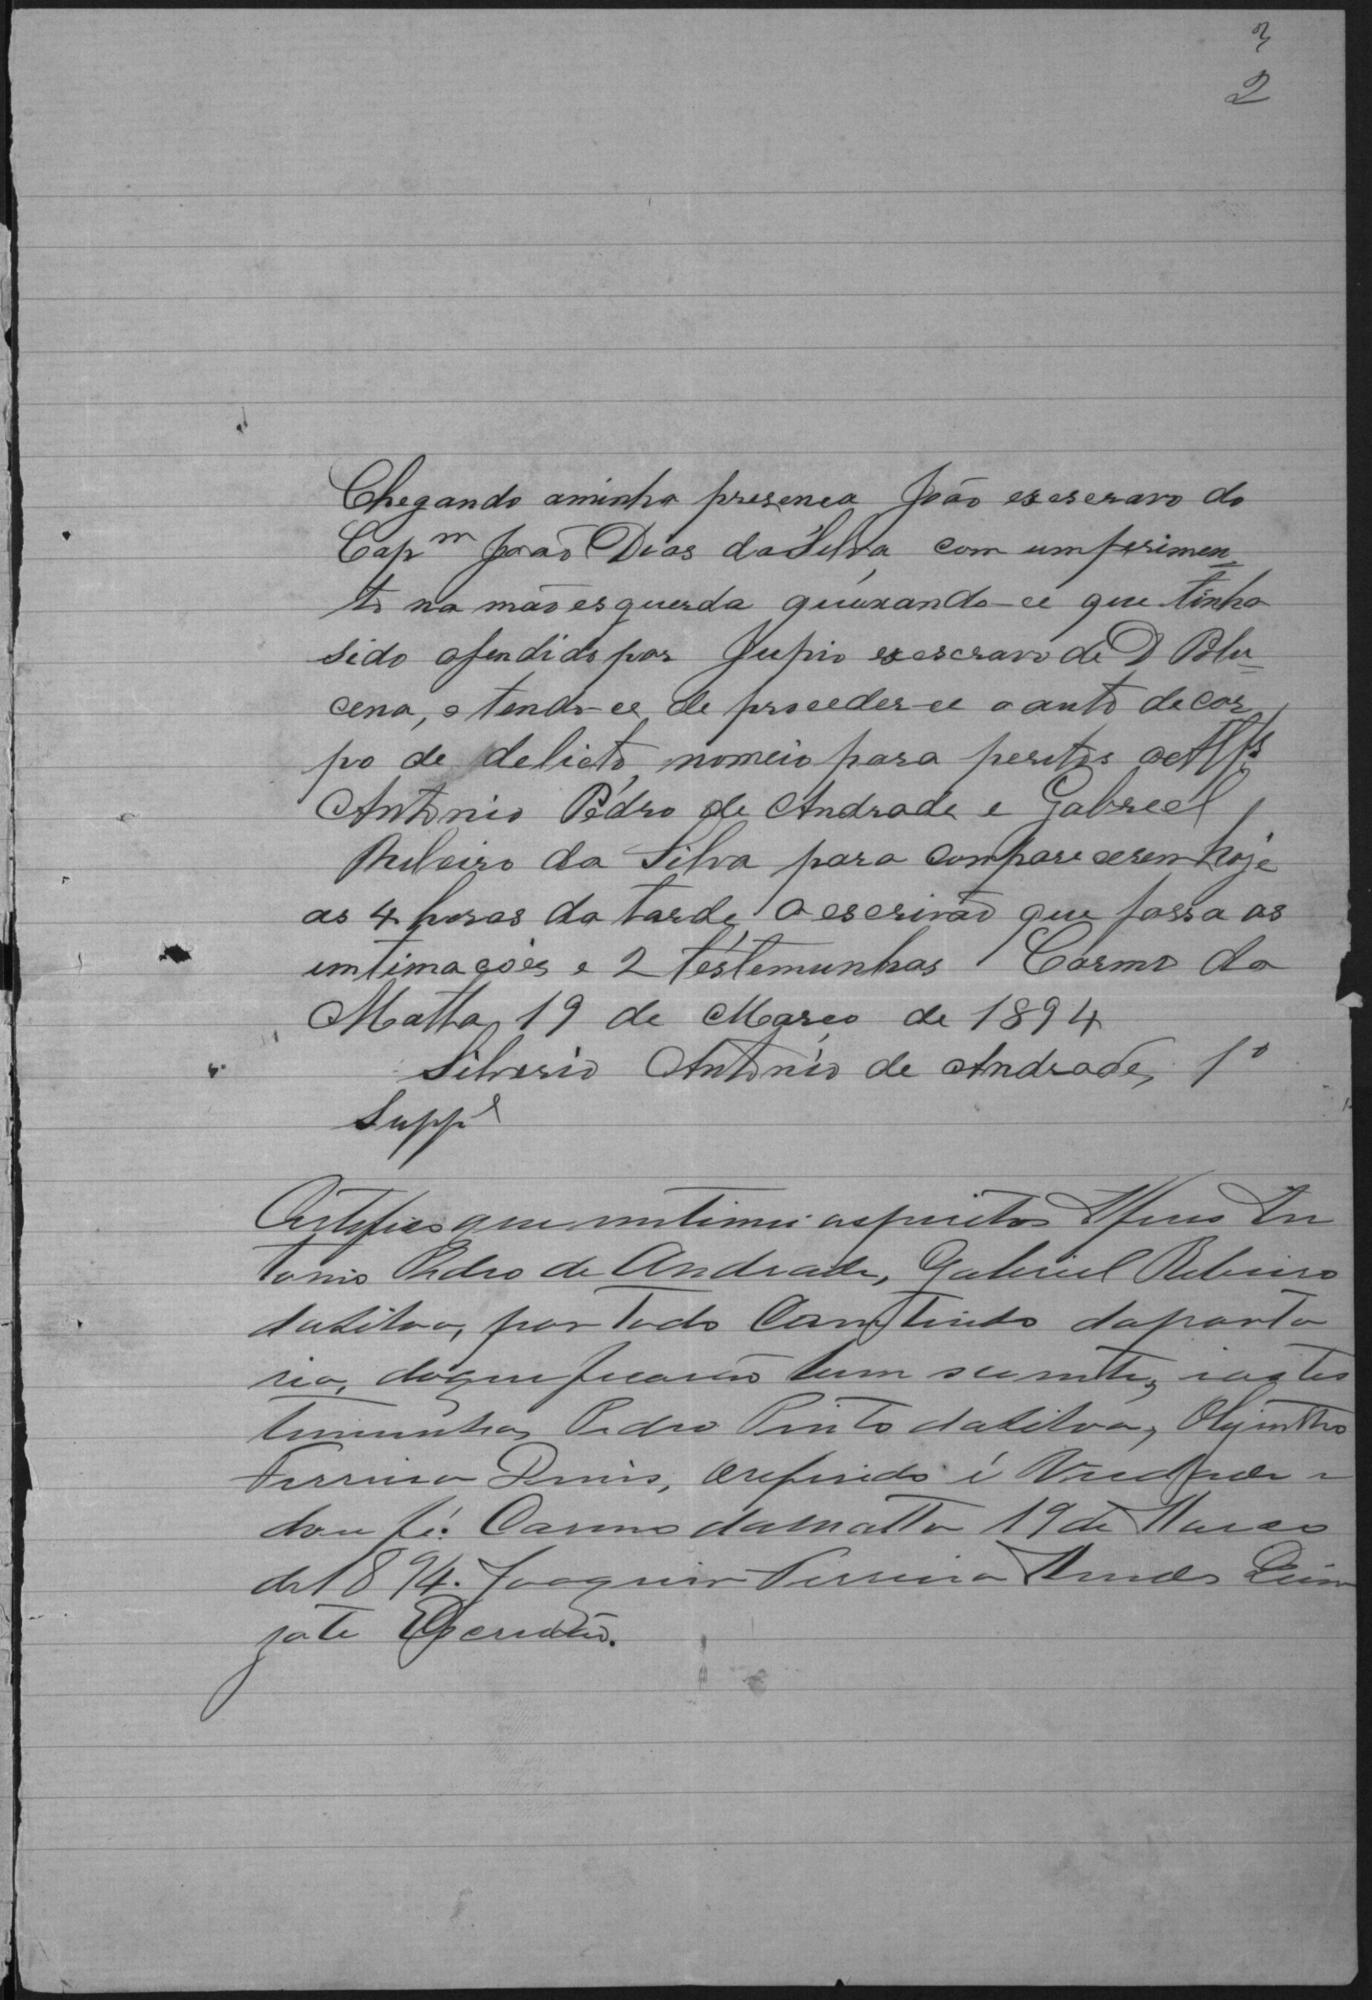 3
2
Chegando aminha presenca João exescravo do
Cap^m João Dias da Silva com umferimen=
to na mão esquerda queixando-ce que tinha
sido ofendido por exescravo de D Polu=
cena, e tendo-ce de proceder-ce o auto de cor
po de delicto, nomeio para peritos o Alfs
Antonio Pedro de Andrade e Gabriel
Ribeiro da Silva para comparecerem hoje
as 4 horas da tarde, O escrivão que fassa as
intimações e 2 testemunhas Carmo da
Matta 19 de Março de 1894
Silverio Antonio de Andrade, 1º
Supp^e
Certefico que intimei os peritos Alferes An
tonio Pedro de Andrade, Gabriel Ribeiro
da Silva, por todo Contiudo daporta
ria, doque ficarão bem scientes, i as tes
timunhas Pedro Pinto da Silva, Olyntho
Ferreira Diniz, O referido é Verdade e
dou fé. Carmo da Matta 19 de Março
de 1894. Joaquim Ferreira Mendes
Escrivão.